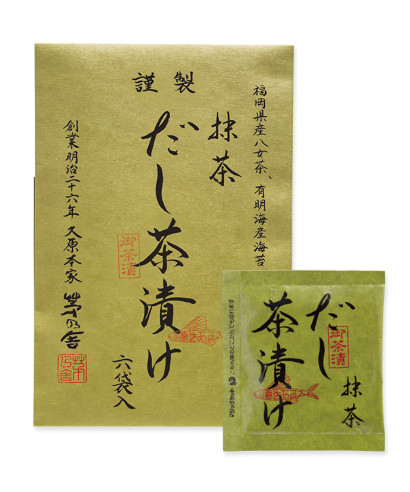 謹製
福岡県産八女茶、有明海産海苔
抹茶
だし茶漬け
御茶漬
六袋入
創業明治二十六年 久原本家 茅乃舎
茅乃舎
抹茶
だし
茶漬け
御茶漬